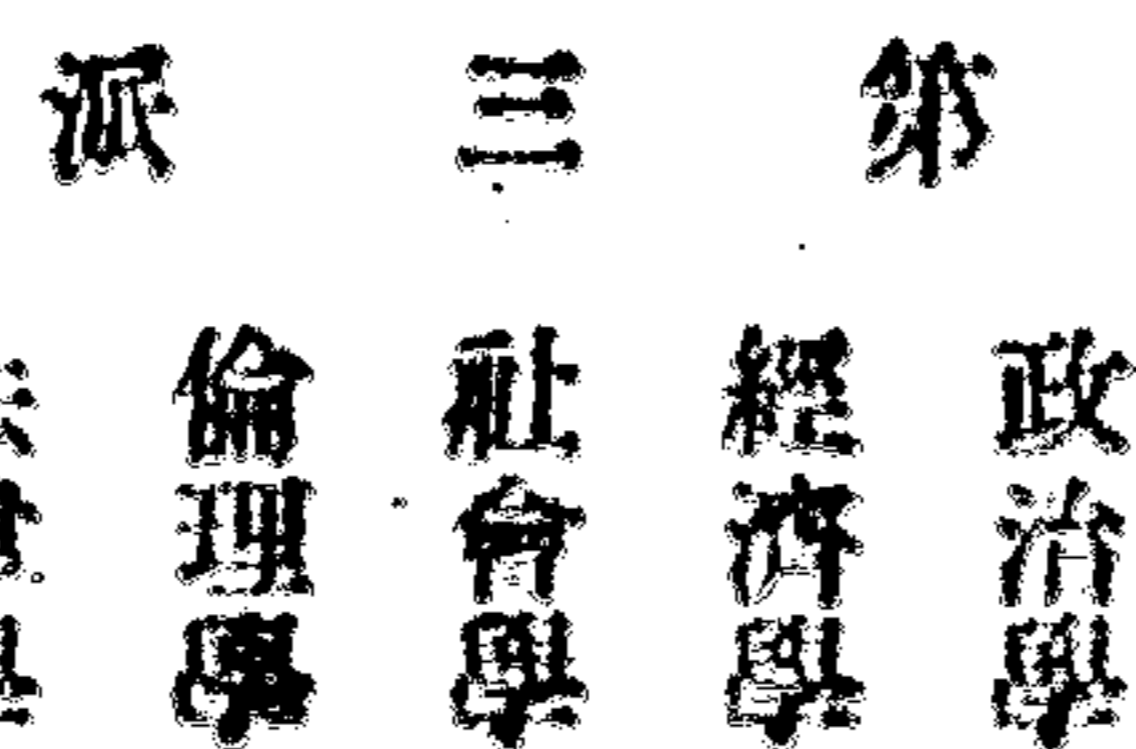 第三派
政治學
經濟學
社會學
倫理學